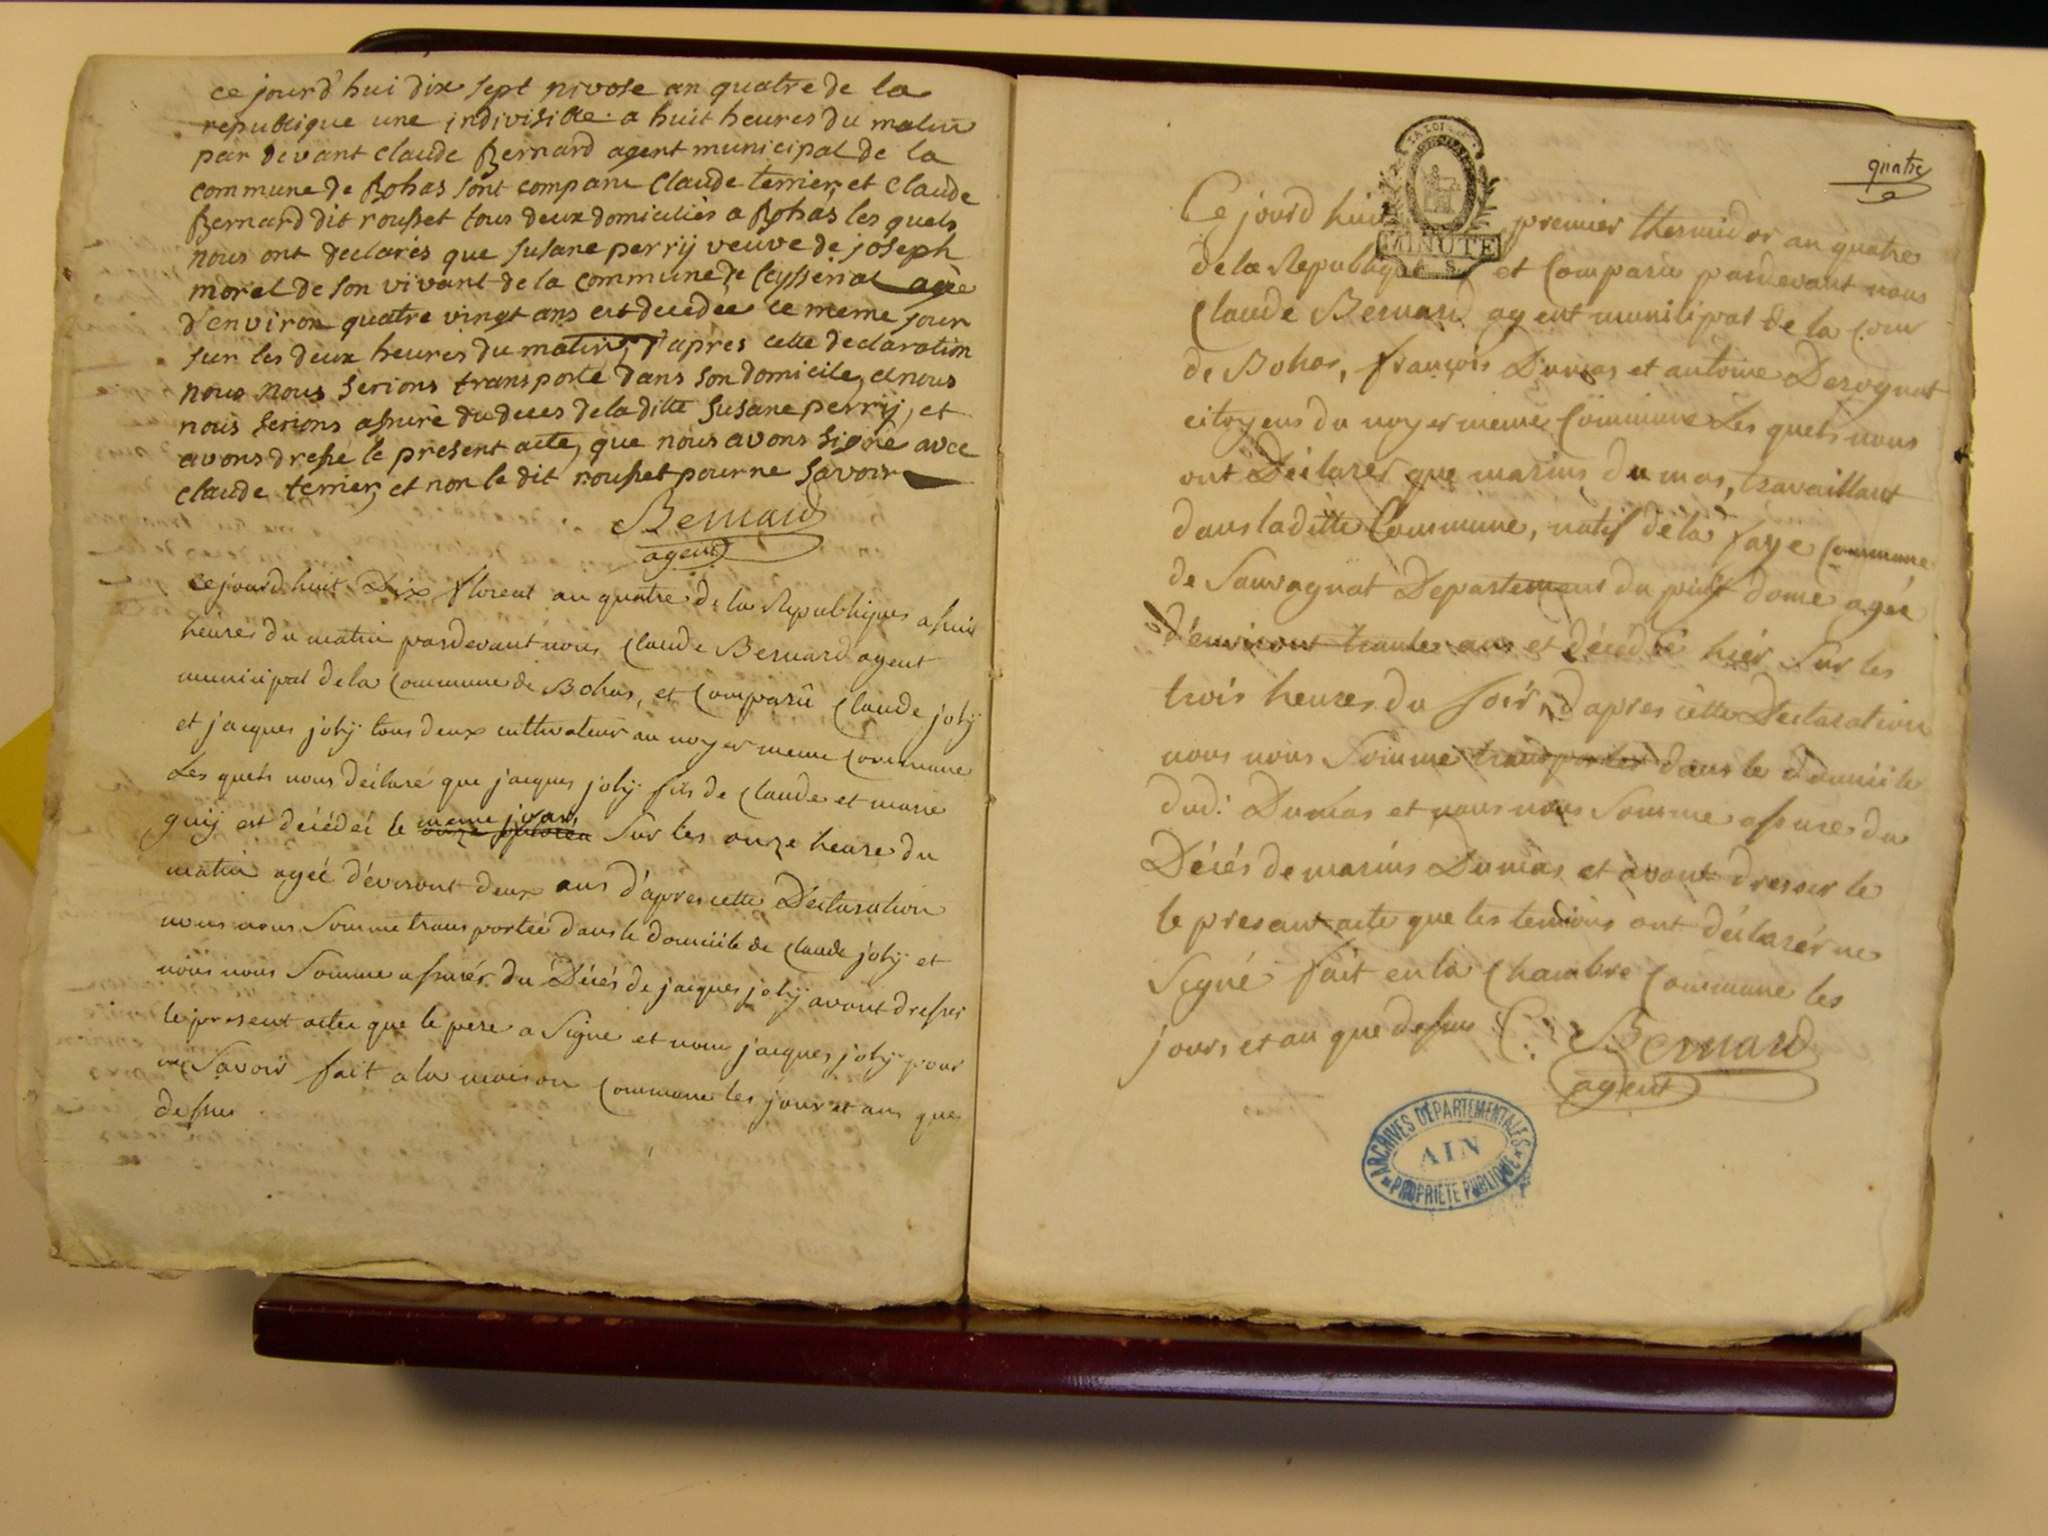 ce jourd'hui dix sept nivose an quatre de la
republique une indivisible a huit heures du matin
par devant claude Bernard agent municipal de la
commune de Bohas sont comparu claude terrier, et claude
Bernard dit rousset tous deux domiciliés a Bohas les quels
nous ont declarés que susane perrij veuve de joseph
morel de son vivant de la commune de Ceysseriat agée
d'environ quatre vingt ans est decedee ce meme jour
sur les deux heures du matin, d'aprés cette declaration
nous nous serions transporté dans son domicile, et nous
nous serions assuré du deces de la ditte susane perrij, et
avons dressé le present acte, que nous avons signé avec
claude terrier, et non le dit rousset pour ne savoir
Bernard
agent
Ce jourd huit Dix floreat an quatre de la Republique a huit
heures du matin pardevant nous Claude Bernard agent
municipal de la Commune de Bohas, et Comparû Claude jolij
et jacques jolij tous deux cultivateur au noyer meme Commune
Les quels nous déclaré que jacques jolij fils de Claude et marie
guij est décédée le meme jour Sur les onze heure du
matin agéé d'éviront deux ans d'apres cette Déclaration
nous nous Somme transportéé dans le domicile de Claude jolij et
nous nous Somme assurér du Décés de jacques jolij avont dresser
le present acte que le pere a Signe et nom jacques jolij pour
ne Savoir fait a la maison Commune les jour et ans que
dessus
quatre
MINUTE
Ce jourd hui premier thermidor an quatre
de la Republique et Comparu pardevant nous
Claude Bernard agent municipal de la Com
de Bohas, françois Dumas et antoine Desognat
citoyens du noyer meme Commune Les quels nous
ont Déclarer que marins dumas, travaillant
dans laditte Commune, natif de la faye Commune
de Sauvagnat Departement du puit dome agée
d'environt trante ans et décédéé hier Sur les
trois heures du soir, d'apres cette Déclaration
nous nous Somme transporter dans le domicile
dud: Dumas et nous nous Somme assures du
Décés de marins Dumas et avont dresser le
le presant acte que les temoins ont déclarér ne
Signé fait en la Chambre Commune les
jours et an que dessus C: Bernard
agent
ARCHIVES DÉPARTEMENTALES
AIN
PROPRIÉTÉ PUBLIQUE